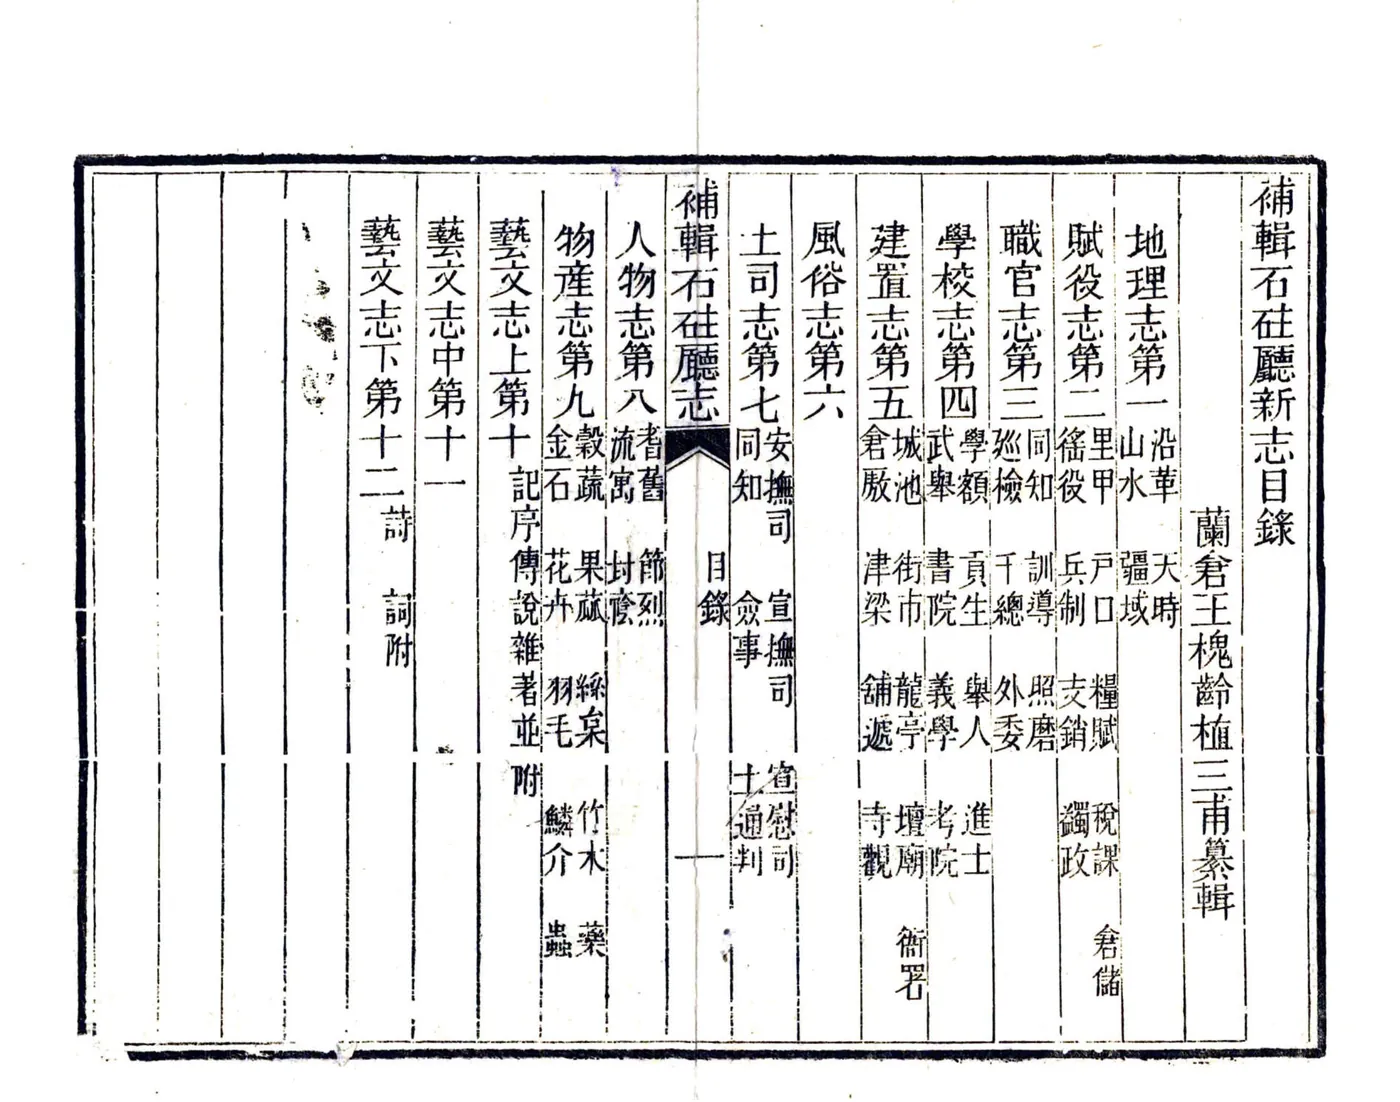 補輯石砫廳新志目錄
蘭倉王槐齡植三甫纂輯
地理志第一 沿革 天時 山水 疆域
賦役志第二 里甲 戶口 糧賦 稅課 倉儲 徭役 兵制 支銷 蠲政
職官志第三 同知 訓導 照磨 廵檢 千總 外委
學校志第四 學額 貢生 舉人 進士 武舉 書院 義學 考院
建置志第五 城池 街市 龍亭 壇廟 衙署 倉厫 津梁 舖遞 寺觀
風俗志第六
土司志第七 安撫司 宣撫司 宣慰司 同知 僉事 土通判
補輯石砫廳志 目錄 一
人物志第八 耆舊 節烈 流寓 封廕
物産志第九 穀蔬 果蓏 絲枲 竹木 藥 金石 花卉 羽毛 鱗介 蟲
藝文志上第十 記序傳說雜著並附
藝文志中第十一
藝文志下第十二 詩 詞附